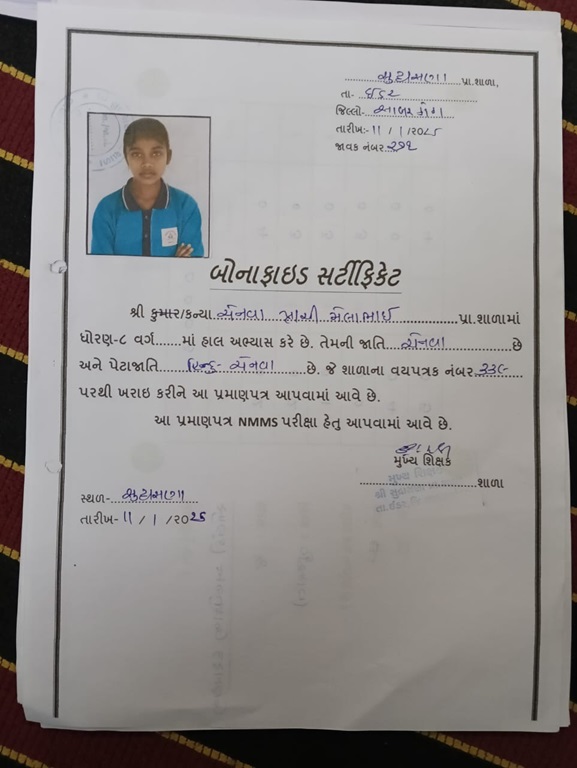 સુદ્રાસણા પ્રા.શાળા,
તા- ઇડર
જિલ્લો- સાબરકાંઠા
તારીખ:- 11 / 1 /૨૦૨૬
જાવક નંબર ૨૭૧
બોનાફાઇડ સર્ટીફિકેટ
શ્રી કુમાર/કન્યા સેનવા મેલાભાઇ પ્રા.શાળામાં
ધોરણ-૮ વર્ગ.......માં હાલ અભ્યાસ કરે છે. તેમની જાતિ સેનવા છે
અને પેટાજાતિ હિન્દુ- સેનવા છે. જે શાળાના વયપત્રક નંબર
પરથી ખરાઇ કરીને આ પ્રમાણપત્ર આપવામાં આવે છે.
આ પ્રમાણપત્ર NMMS પરીક્ષા હેતુ આપવામાં આવે છે.
મુખ્ય શિક્ષક
શાળા
સ્થળ-
તારીખ- 11 / 1 /૨૦૨૬